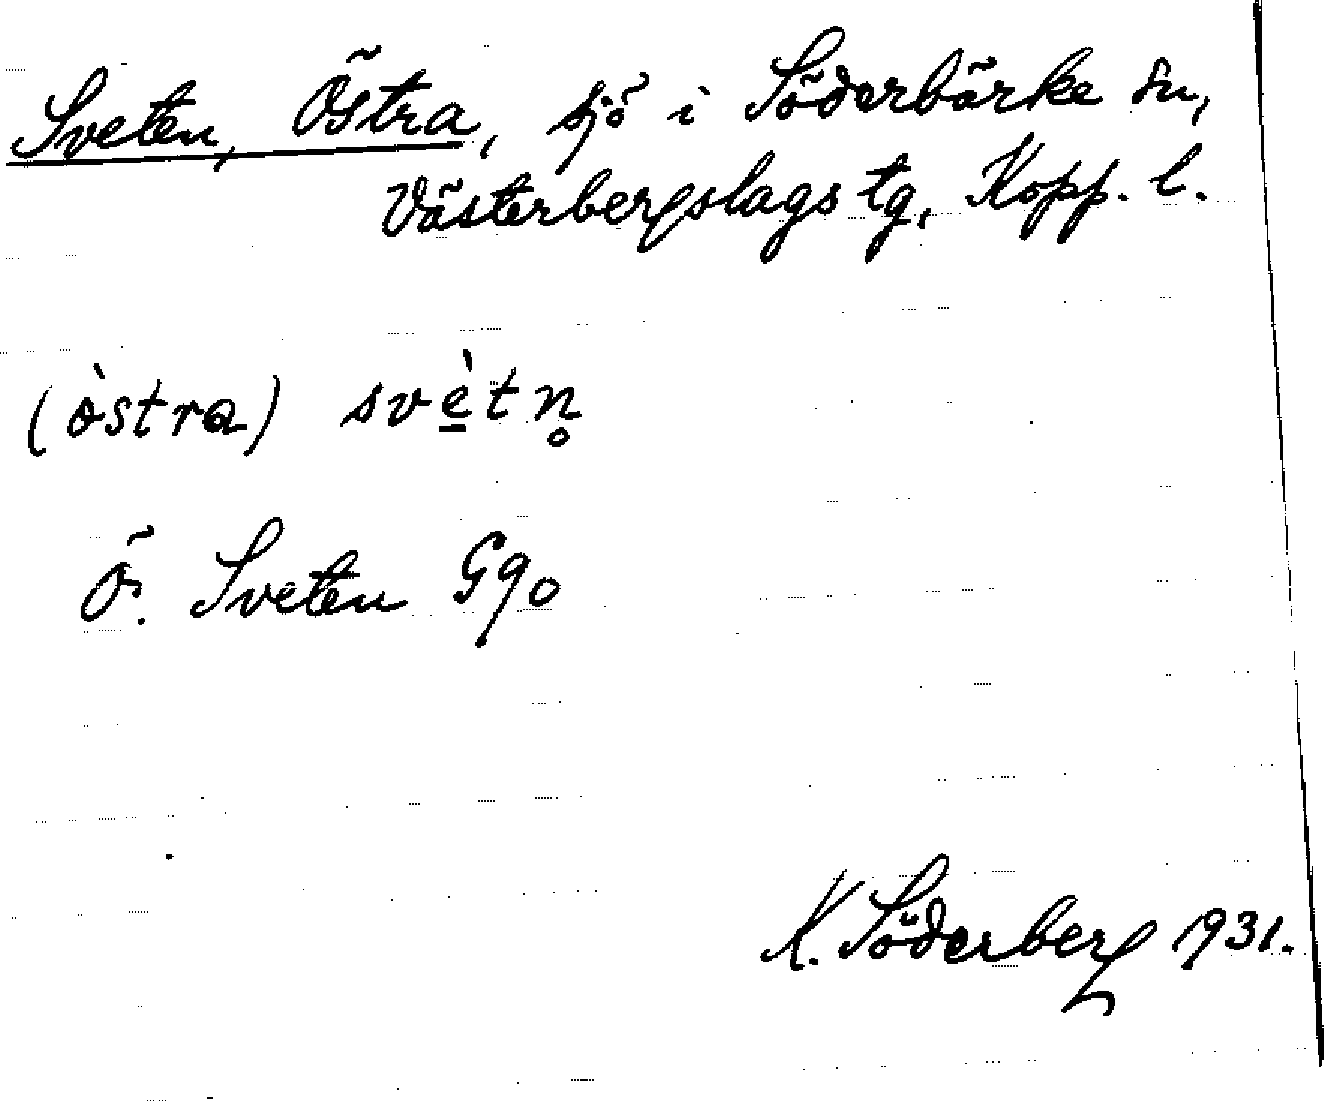 Sveten, Östra, sjö i Söderbärke sn,
Västerbergslags tg, Kopp. l.
(òstra) svè̱tn̥
Ö. Sveten Gqo
K. Söderberg 1931.